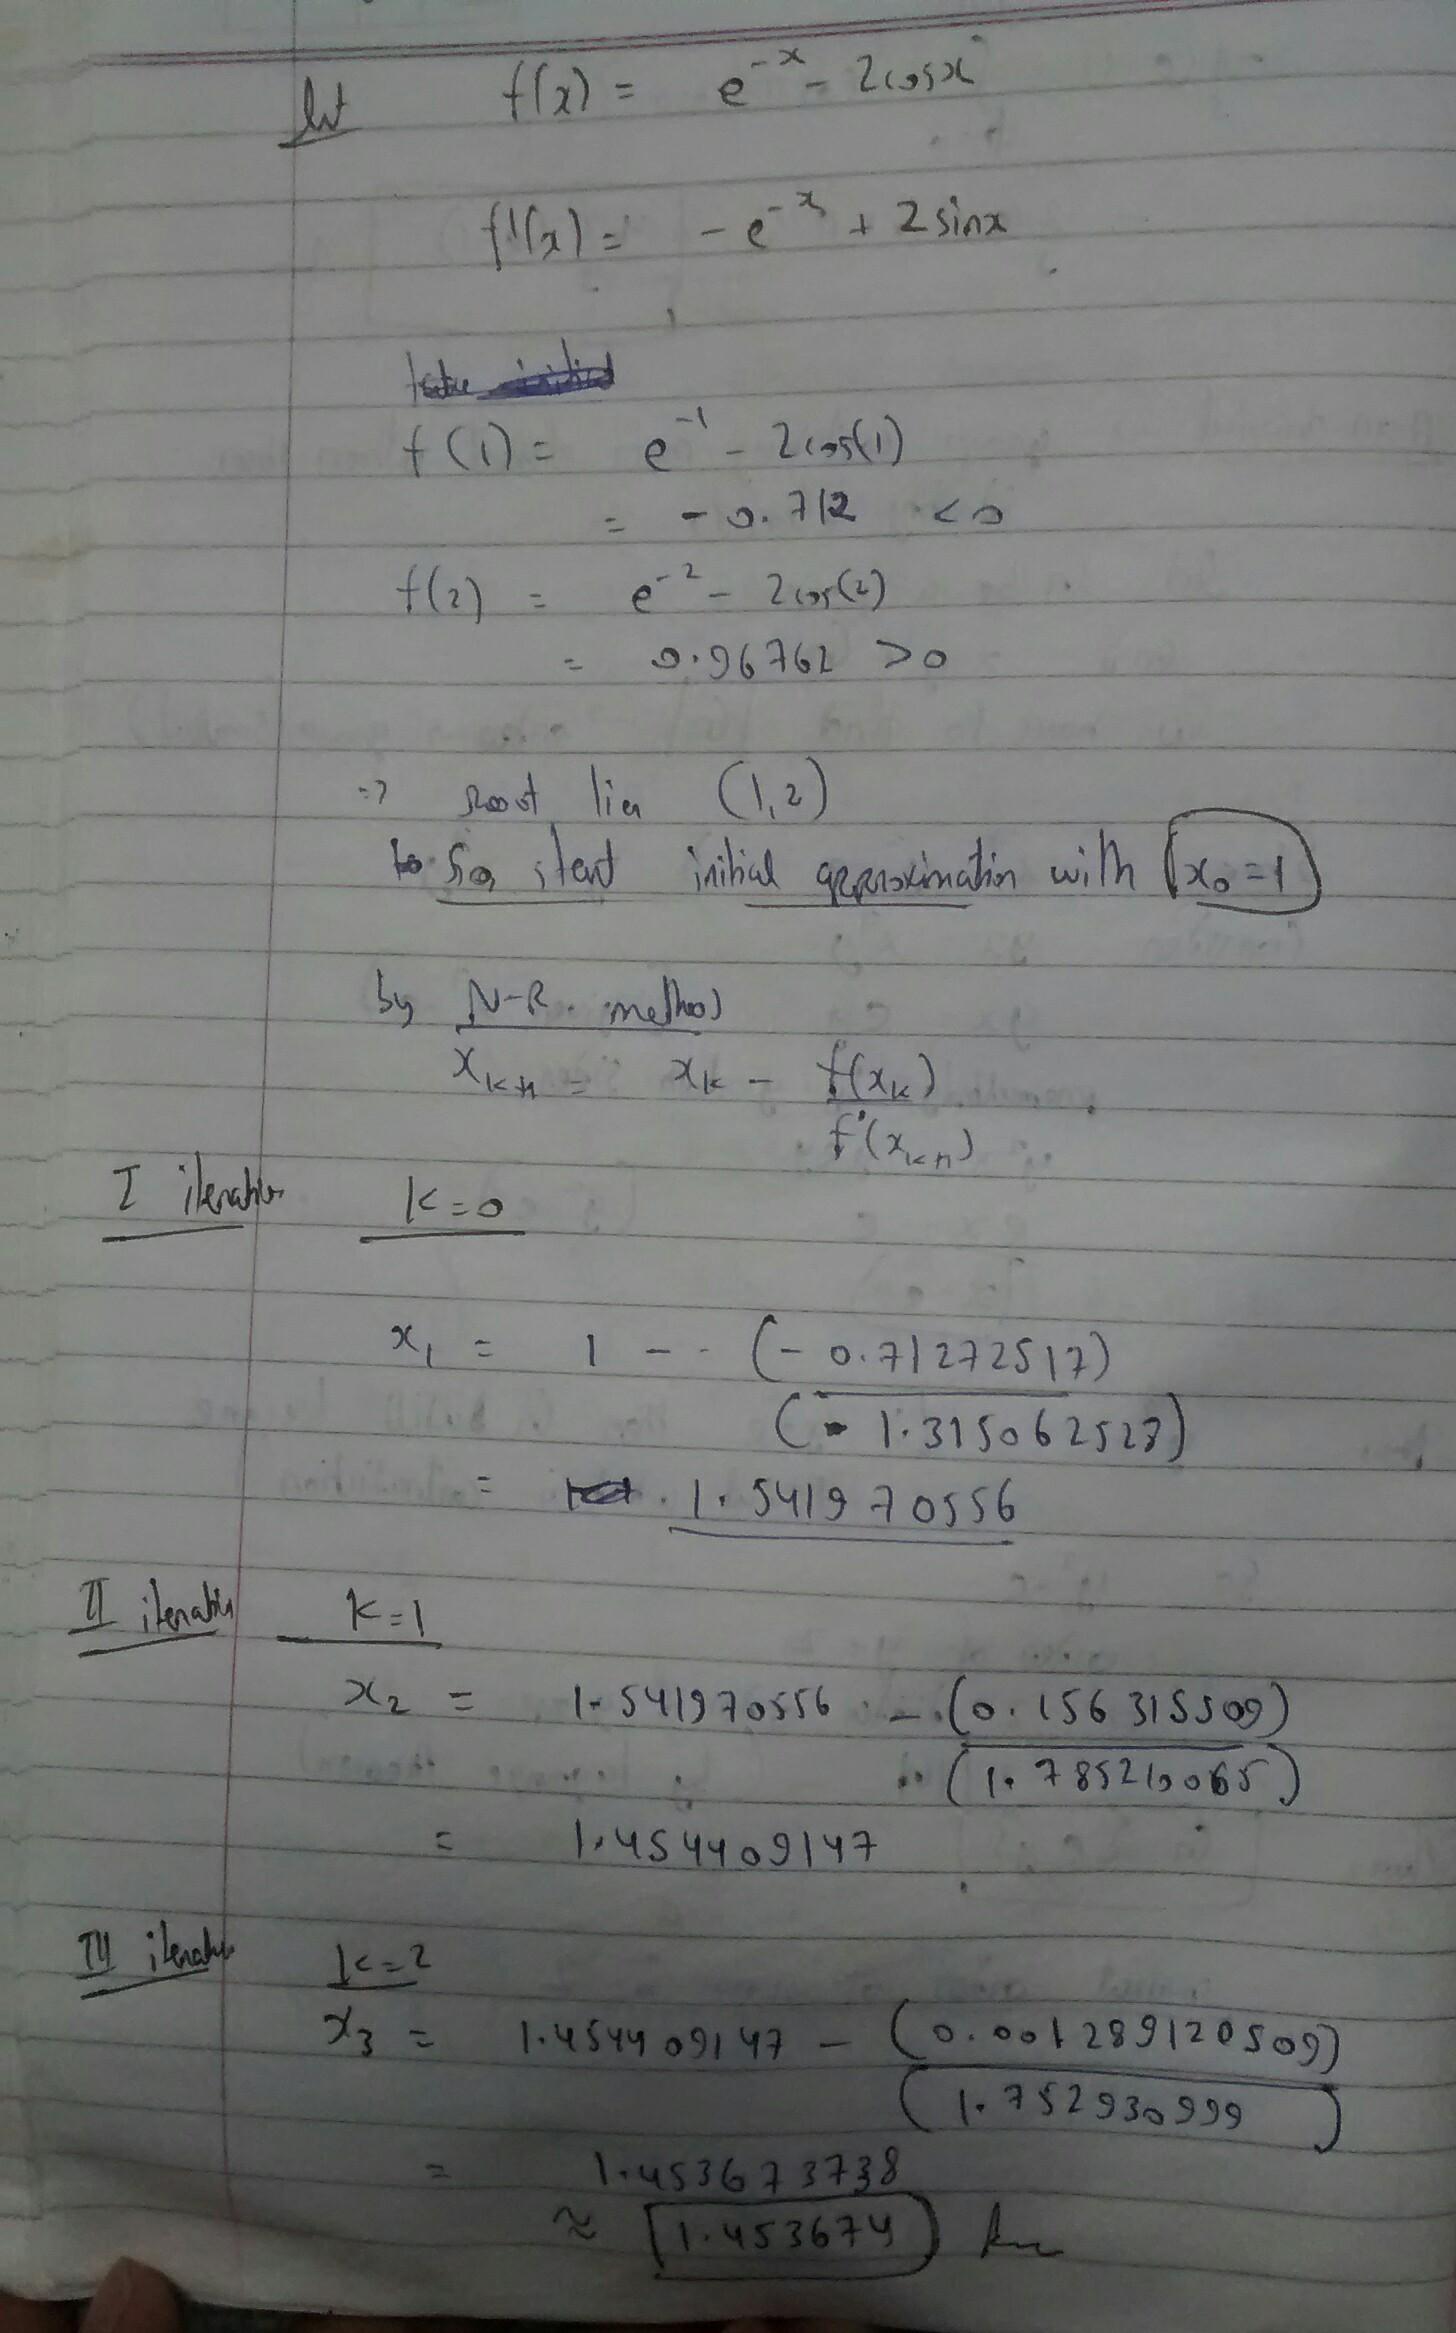 let f(x) = e^-x - 2cosx
f'(x) = -e^-x + 2 sinx
take initial
f(1) = e^-1 - 2cos(1)
= -0.712 <0
f(2) = e^-2 - 2cos(2)
= 0.96762 >0
=> root lies (1,2)
so, start initial approximation with x₀=1
by N-R. method
x_k+1 = x_k - f(x_k)
f'(x_k+1)
I iteration k=0
x₁ = 1 - (-0.71272517)
(1.315062523)
= 1.541970556
II iteration k=1
x₂ = 1.541970556 - (0.156315509)
(1.785210065)
= 1.454409147
III iteration k=2
x₃ = 1.454409147 - (0.001289120509)
(1.752930999)
= 1.453673738
≈ 1.453674